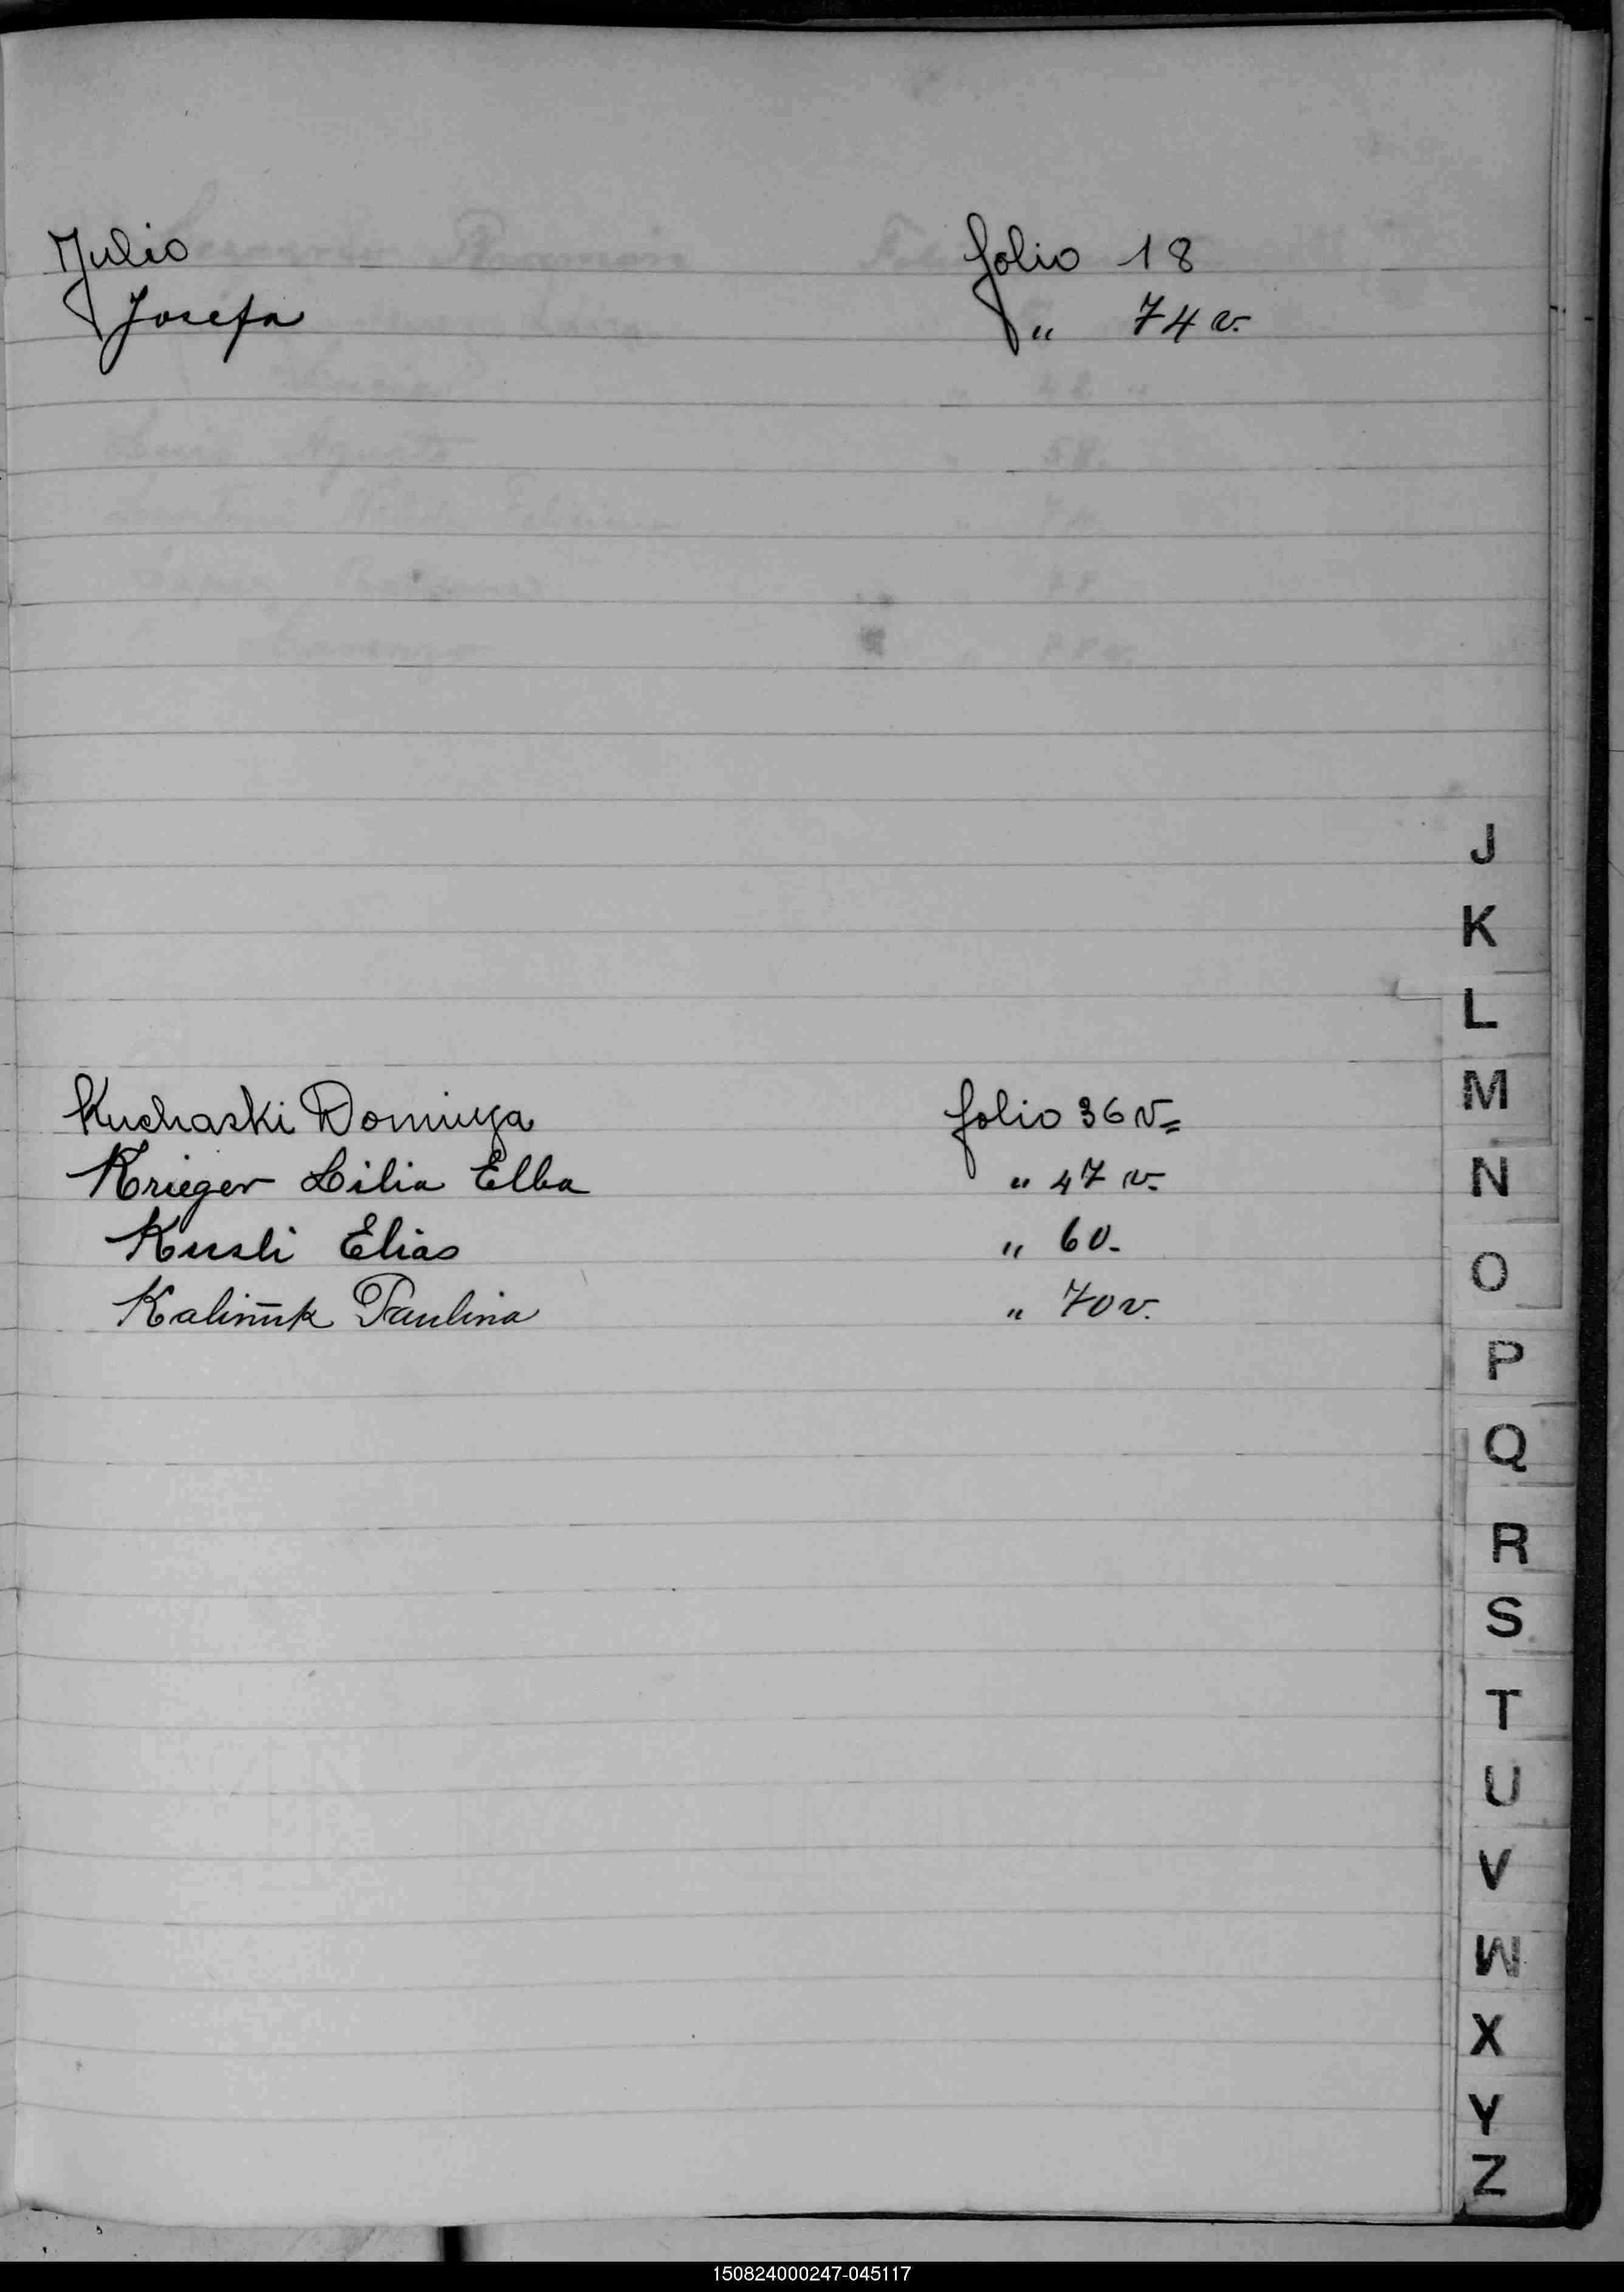 Julio folio 18
Josefa " 74 v.
J
K
L
Kuchaski Dominga folio 36 v=
M
Krieger Lilia Elba " 47 v.
N
Kusli Elias " 60.
O
Kalinuk Paulina " 70 v.
P
Q
R
S
T
U
V
W
X
Y
Z
150824000247-045117